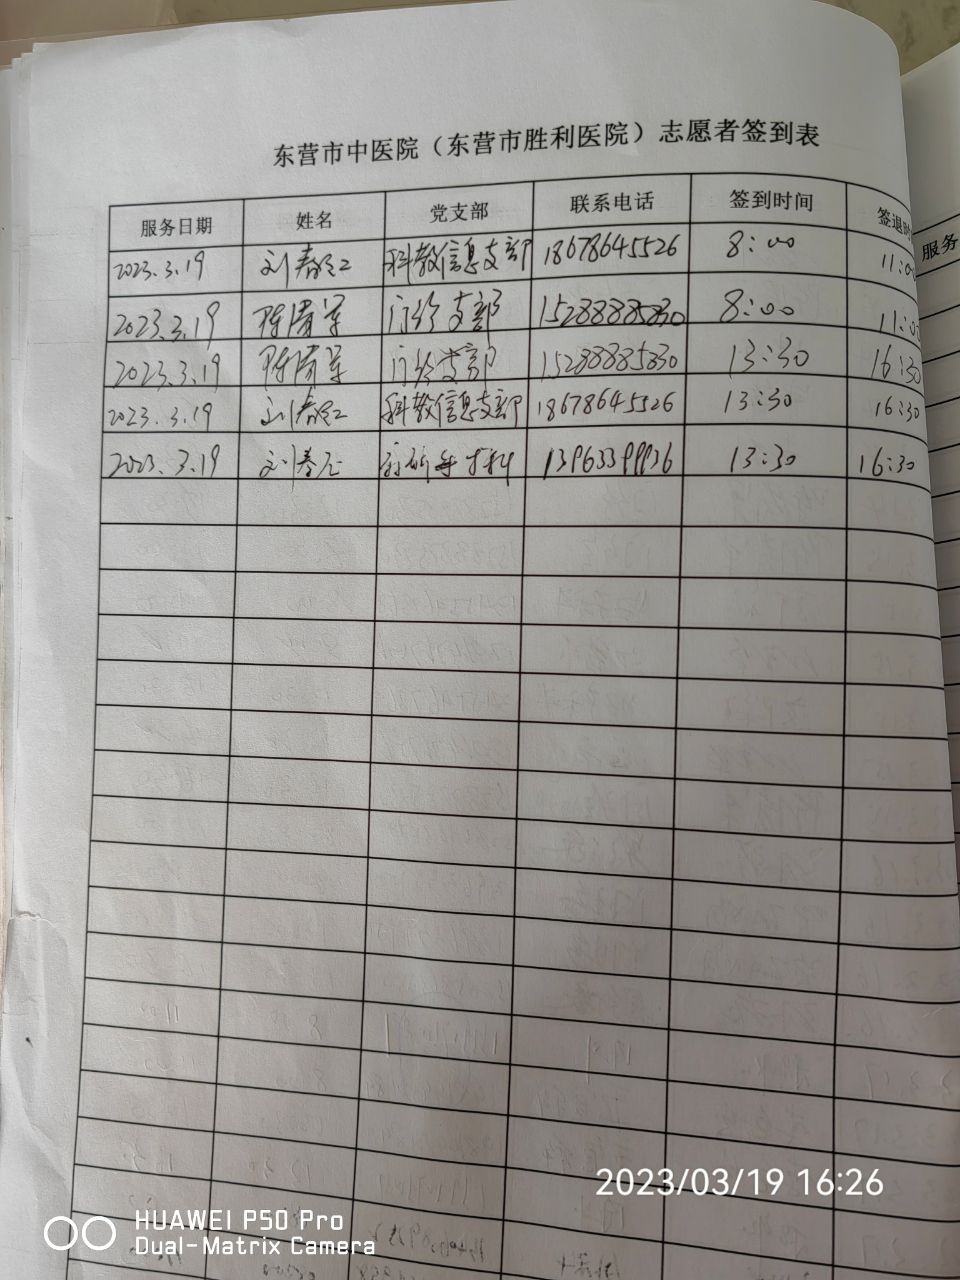 东营市中医院（东营市胜利医院）志愿者签到表
服务日期 姓名 党支部 联系电话 签到时间 签退时
2023.3.19 刘春红 科教信息支部 18678645526 8:00 11:00
2023.3.19 陈清军 门诊支部 15288885830 8:00 11:00
2023.3.19 陈清军 门诊支部 15288885830 13:30 16:30
2023.3.19 刘春红 科教信息支部 18678645526 13:30 16:30
2023.3.19 刘春 13:30 16:30
服务
2023/03/19 16:26
HUAWEI P50 Pro
Dual-Matrix Camera